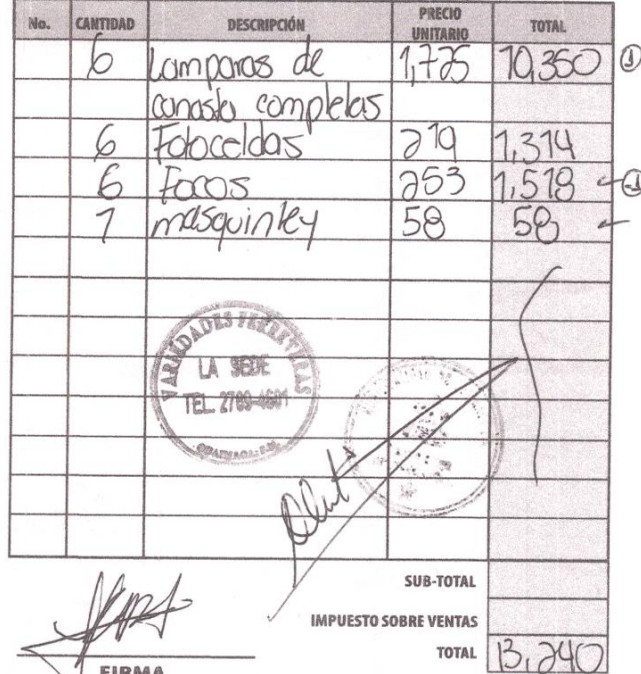 No. CANTIDAD DESCRIPCIÓN PRECIO UNITARIO TOTAL
6 Lamparas de 1,725 10,350 1
canasta completas
6 Fotoceldas 219 1,314
6 Focos 253 1,518
1 masquinley 58 58
VARIEDADES FERRETERAS
LA SEDE
TEL. 2769-4601
SUB-TOTAL
IMPUESTO SOBRE VENTAS
TOTAL 13,240
FIRMA